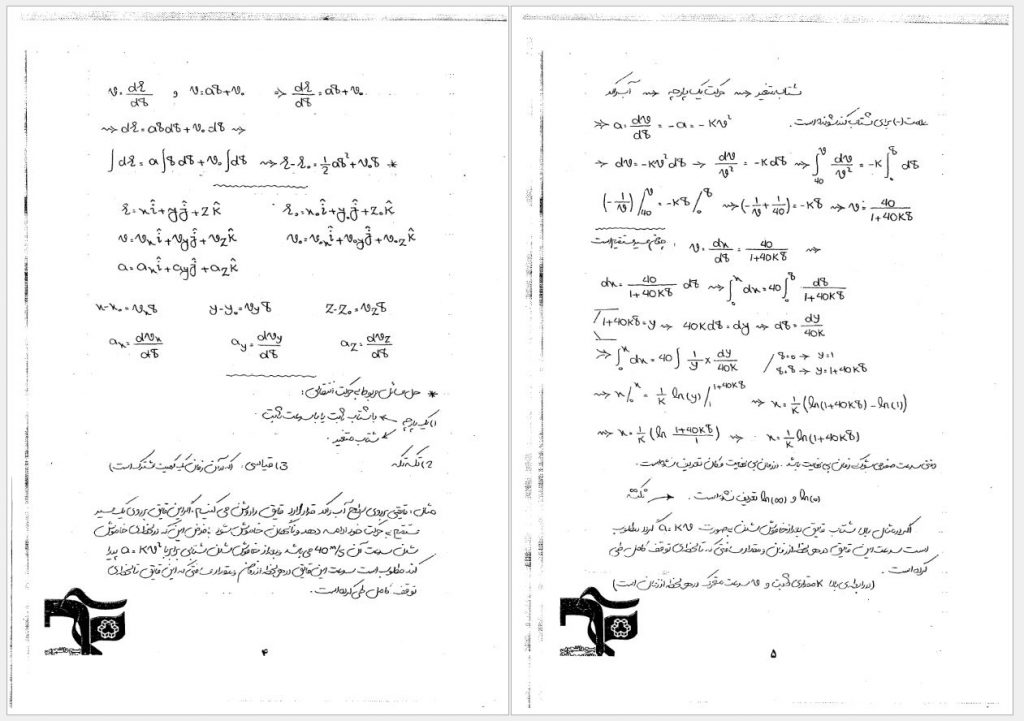 v = dr/dt , v = at + v₀ ⇒ dr/dt = at + v₀
⇝ dr = at dt + v₀ dt ⇝
∫dr = a∫t dt + v₀∫dt ⇝ r - r₀ = 1/2 at² + v₀t *
r = xî + yĵ + zk̂ r₀ = x₀î + y₀ĵ + z₀k̂
v = vₓî + v_yĵ + v_zk̂ v₀ = v₀ₓî + v₀yĵ + v₀zk̂
a = aₓî + a_yĵ + a_zk̂
x - x₀ = vₓt y - y₀ = v_yt z - z₀ = v_zt
aₓ = dvₓ/dt a_y = dv_y/dt a_z = dv_z/dt
* حل مسائل مربوط به حرکت انتقالی :
1) یک پارچه باشتاب ثابت یا با سرعت ثابت
شتاب متغیر
2) تکه تکه 3) قیاسی
مثال: قایقی برروی آب راکد قرار دارد قایق را روشن می کنیم، اگر این قایق برروی یک مسیر
مستقیم به حرکت خود ادامه دهد و ناگهان خاموش شود بافرض این که در لحظه ی خاموش
شدن سرعت آن 40 m/s می باشد و بعد از خاموش شدن شتابی برابر با a = KV² پیدا
کند مطلوب است سرعت این قایق در هر لحظه از زمان و مقدار مسافتی که این قایق تا لحظه ی
توقف کامل طی کرده است.
۴
شتاب متغیر ⇝ حرکت یک پارچه ⇝ آب راکد
⇒ a = dv/dt = -a = -KV² علامت (-) برای شتاب کند شونده است.
⇒ dv = -KV²dt ⇝ dv/v² = -Kdt ⇝ ∫₄₀ᵛ dv/v² = -K∫₀ᵗ dt
(-1/v)/₄₀ᵛ = -Kt/₀ᵗ ⇝ (-1/v + 1/40) = -Kt ⇝ v = 40/(1+40Kt)
چون مسیر مستقیم است : v = dx/dt = 40/(1+40Kt) ⇝
dx = 40/(1+40Kt) dt ⇝ ∫₀ˣ dx = 40∫₀ᵗ dt/(1+40Kt)
1+40Kt = y ⇝ 40Kdt = dy ⇝ dt = dy/40K
⇒ ∫₀ˣ dx = 40∫ 1/y × dy/40K / t=0 → y=1
t=t → y=1+40Kt
⇝ x/₀ˣ = 1/K ln(y)/₁¹⁺⁴⁰ᴷᵗ ⇝ x = 1/K (ln(1+40Kt) - ln(1))
⇝ x = 1/K (ln (1+40Kt)/1) ⇝ x = 1/K ln(1+40Kt)
وقتی سرعت صفر می شود که زمان بی نهایت باشد . در زمان بی نهایت مکان تعریف نشده است.
ln(0) و ln(∞) تعریف نشده است. → نکته
اگر در مثال بالا شتاب قایق بعد از خاموش شدن به صورت a = KV گردد مطلوب
است سرعت این قایق در هر لحظه از زمان و مقدار مسافتی که تا لحظه ی توقف کامل طی
کرده است.
(در رابطه ی بالا K مقداری ثابت و V سرعت متحرک در هر لحظه از زمان است)
۵